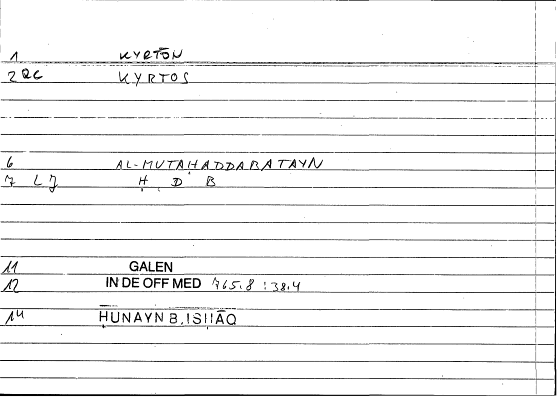 1 KYRTŌN
2 QC KYRTOS
6 AL-MUTAḤADDABATAYN
7 LJ Ḥ D B
11 GALEN
12 IN DE OFF MED 765.8 : 38.4
14 ḤUNAYN B. ISḤĀQ